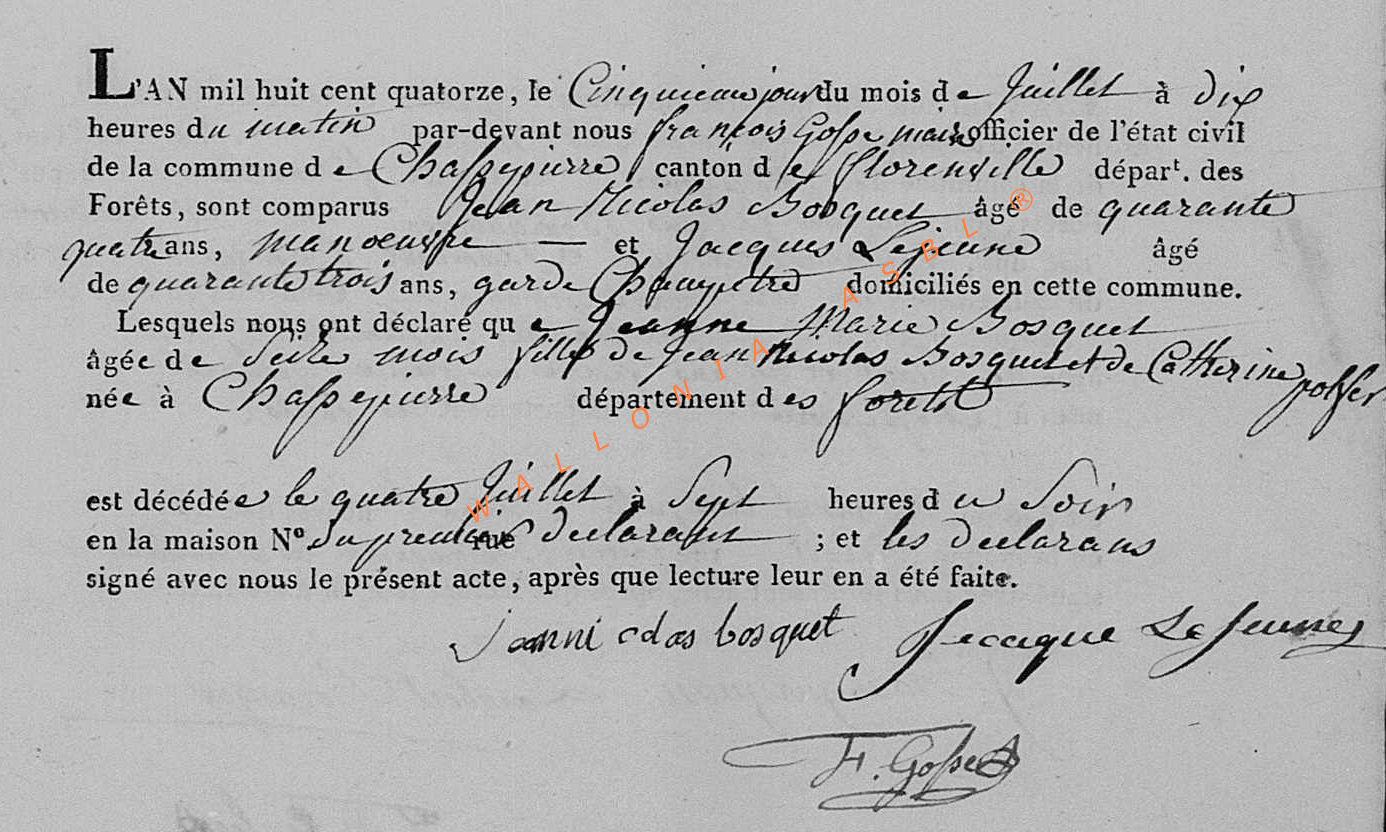 L'AN mil huit cent quatorze, le Cinquieme jour du mois de Juillet à dix
heures du matin par-devant nous françois Gosse maire officier de l'état civil
de la commune de Chassepierre canton de florenville départ. des
Forêts, sont comparus Jean Nicolas Bosquet âgé de quarante
quatre ans, manoeuvre — et Jacques Lejeune âgé
de quarante trois ans, garde Champetre domiciliés en cette commune.
Lesquels nous ont déclaré que Jeanne Marie Bosquet
âgée de Seize mois fille de Jean Nicolas Bosquet et de Catherine
née à Chassepierre département des forets
est décédée le quatre Juillet à Sept heures du Soir
en la maison N.º du premier rue declarant ; et les declarans
signé avec nous le présent acte, après que lecture leur en a été faite.
bosquet Jecaque Le Jeune
F. Gosse
WALLONIA ASBL ®